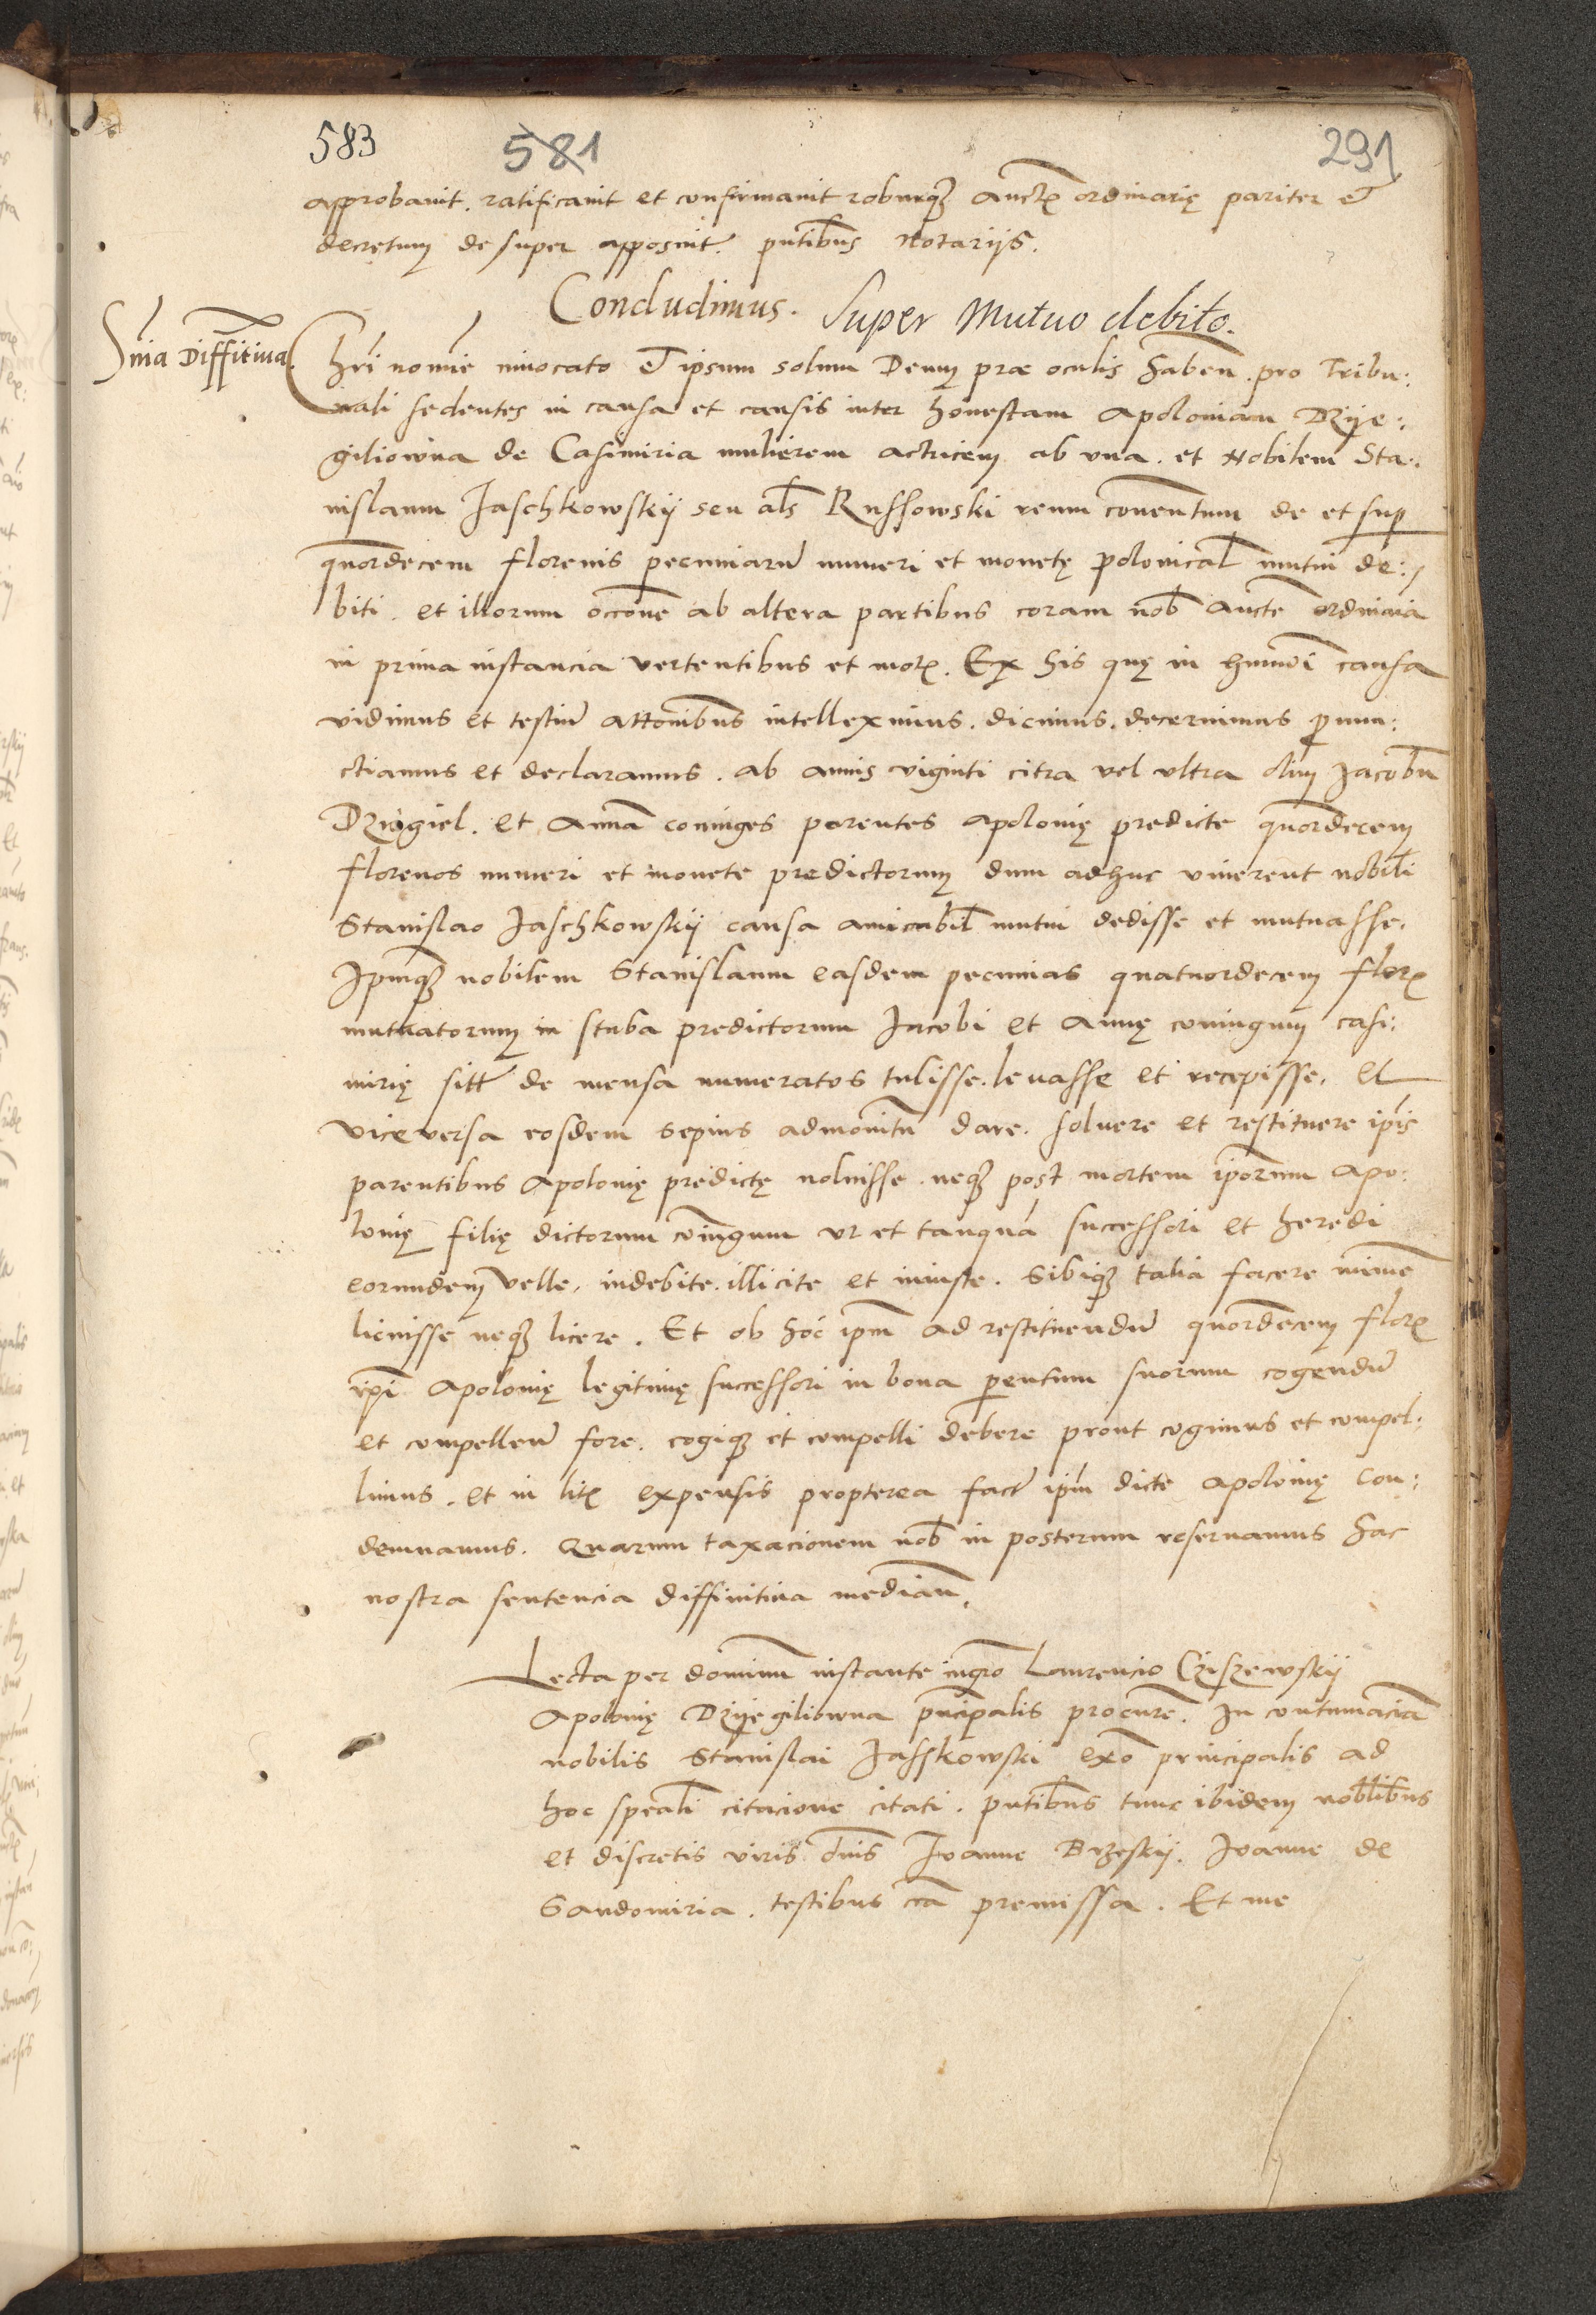 583 581 291
approbauit. ratificauit et confirmauit roburq auctę ordinarię pariter et
decretum desuper apposuit. pntibus Notarijs.
Concludimus. Super Mutuo debito.
Snia Diffitiua.
Chri nomie inuocato et ipsum solum Deum prae oculis haben. pro Tribu:
nali sedentes in causa et causis inter honestam Apoloniam Dzije:
giliowna de Casimiria mulierem actricem ab vna. et Nobilem Sta:
nislaum Jaschkowskij seu als Russowski reum conuentum de et sup
quordecem florenis pecuniaru numeri et monetę polonical mutui de:
biti. et illorum occone ab altera partibus coram nob aucte ordinaia
in prima instancia vertentibus et mot. Ex his quę in hmodi causa
vidimus et testiu attonibus intelleximus. dicimus. decernimus pnun:
ctiamus et declaramus. ab annis viginti citra vel vltra olim Jacobu
Dziągiel. et Anna coniuges parentes Apolonię predicte quordecem
florenos numeri et monete predictorum dum adhuc viuerent nobili
Stanislao Jaschkowskij causa amicabil mutui dedisse et mutuasse.
Ipmq nobilem Stanislaum easdem pecunias quatuordecem flor
mutuatorum in stuba predictorum Jacobi et Annę coniugum casi:
mirię sitt de mensa numeratos tulisse. leuasse et recepisse. et
viceversa eosdem sepius admonitu dare. soluere et restituere ipis
parentibus Apolonię predictę noluisse. neq post mortem iporum Apo:
lonię filię dictorum coiugum vt et tanqua successori et heredi
eorundem velle. indebite. illicite et iniuste. Sibiq talia facere minime
licuisse neq licere. Et ob hoc ipm ad restituendu quordecem flor
ipi Apolonię legitimę successori in bona pentum suorum cogendu
et compellen fore. cogiq et compelli debere prout cogimus et compel:
limus. et in lit expensis propterea fact ipm dicte Apolonię con:
demnamus. Quarum taxacionem nob in posterum reseruamus hac
nostra sentencia diffinitiua median.
Lecta per dominum instante mgro Laurencio Cziszewskij
Apolonię Dzijegiliowna pncipalis procure. In contumacia
nobilis Stanislai Jasskowski exo principalis ad
hoc speali citacione citati. pntibus tunc ibidem noblibus
et discretis viris dnis Joanne Brzeskij. Joanne de
Sandomiria. testibus cca premissa. Et me